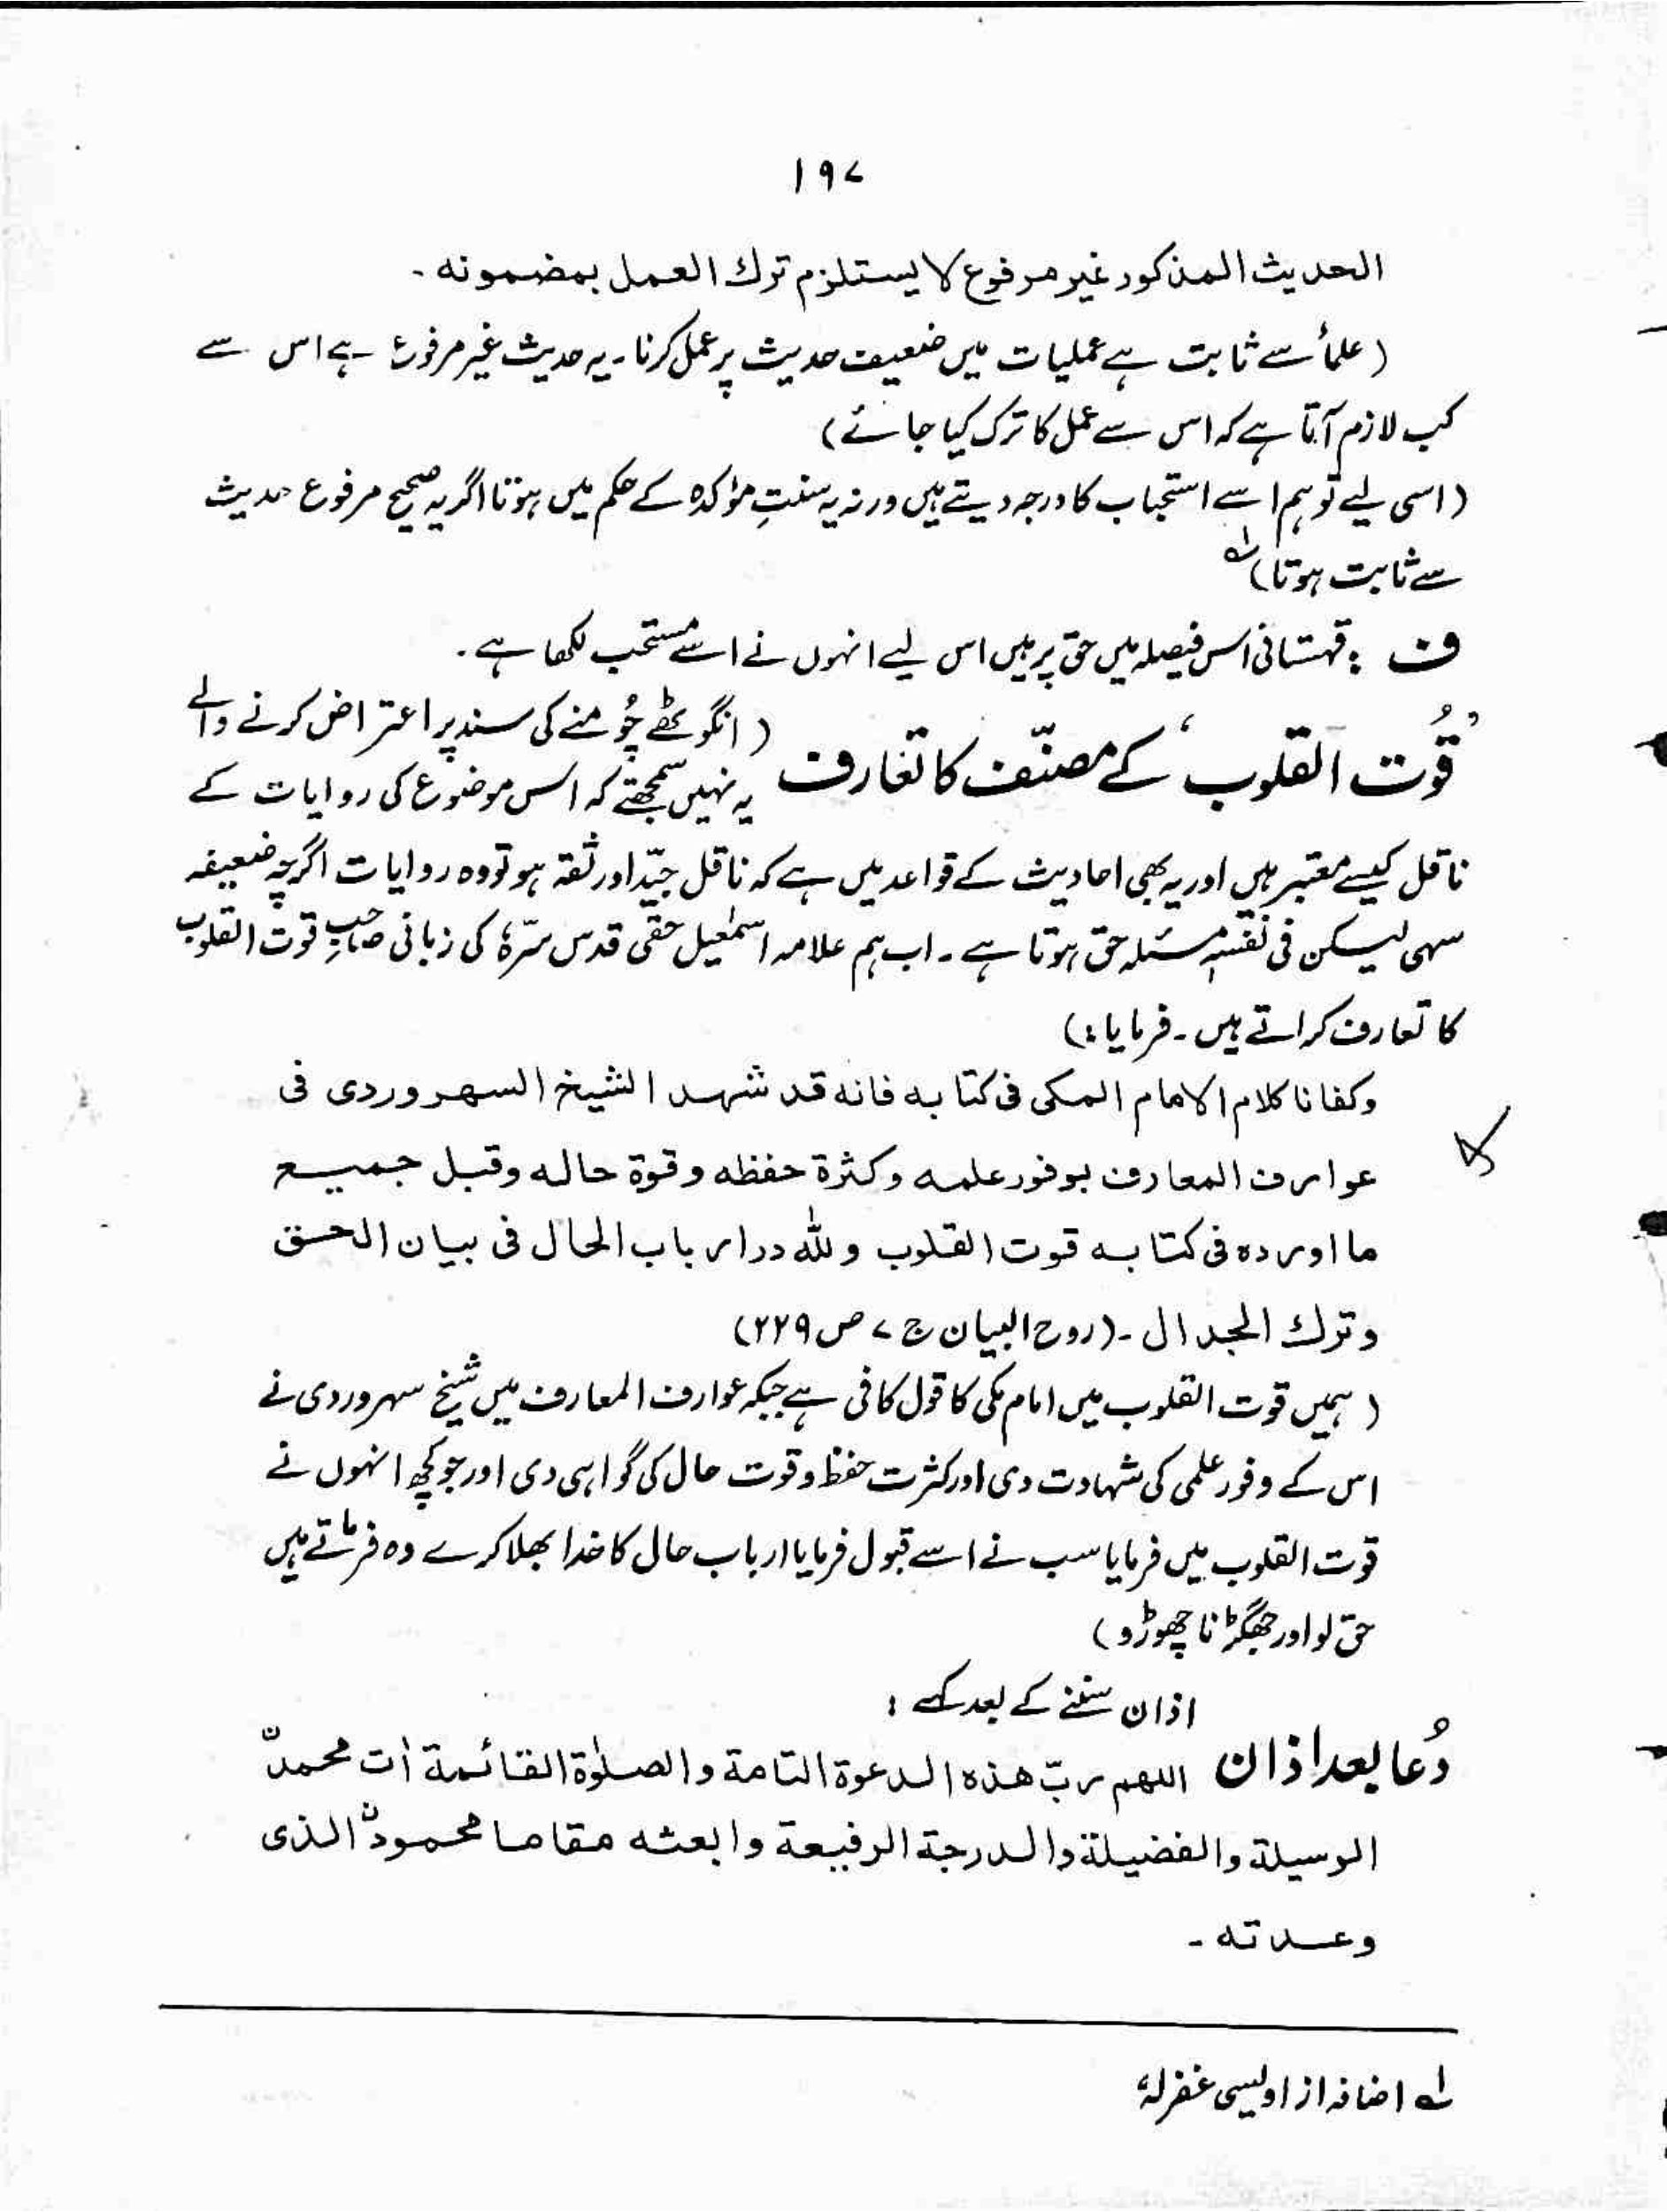 ۱۹۷
الحدیث المذکور غیر مرفوع لا یستلزم ترك العمل بمضمونه ۔
(علمأ سے ثابت ہے عملیات میں ضعیف حدیث پر عمل کرنا ۔ یہ حدیث غیر مرفوع ہے اس سے
کب لازم آتا ہے کہ اس سے عمل کا ترک کیا جائے)
(اسی لیے تو ہم اسے استحباب کا درجہ دیتے ہیں ورنہ یہ سنتِ مؤکدہ کے حکم میں ہوتا اگر یہ صحیح مرفوع حدیث
سے ثابت ہوتا)۱ے
ف : قہستانی اس فیصلہ میں حق پر ہیں اس لیے انہوں نے اسے مستحب لکھا ہے ۔
’قُوت القلوب‘ کے مصنّف کا تعارف (انگوٹھے چُومنے کی سند پر اعتراض کرنے والے
یہ نہیں سمجھتے کہ اس موضوع کی روایات کے
ناقل کیسے معتبر ہیں اور یہ بھی احادیث کے قواعد میں ہے کہ ناقل جیّد اور ثقہ ہو تو وہ روایات اگرچہ ضعیفہ
سہی لیکن فی نفسہٖ مسئلہ حق ہوتا ہے ۔ اب ہم علامہ اسمٰعیل حقی قدس سّرہٗ کی زبانی صاحبِ قوت القلوب
کا تعارف کراتے ہیں ۔ فرمایا :)
وکفانا کلام الامام المکی فی کتابه فانه قد شهد الشیخ السهروردی فی
عوارف المعارف بوفور علمه وکثرة حفظه وقوة حاله وقبل جمیع
ما اورده فی کتابه قوت القلوب ولله در ارباب الحال فی بیان الحق
وترك الجدال ۔ (روح البیان ج ۷ ص ۲۲۹)
(ہمیں قوت القلوب میں امام مکی کا قول کافی ہے جبکہ عوارف المعارف میں شیخ سہروردی نے
اس کے وفور علمی کی شہادت دی اور کثرت حفظ و قوت حال کی گواہی دی اور جو کچھ انہوں نے
قوت القلوب میں فرمایا سب نے اسے قبول فرمایا ارباب حال کا خدا بھلا کرے وہ فرماتے ہیں
حق لو اور جھگڑنا چھوڑو)
اذان سننے کے بعد کہے :
دُعا بعد اذان اللهم ربّ هذه الدعوة التامة والصلوٰة القائمة اٰت محمدنّ
الوسیلة والفضیلة والدرجة الرفیعة وابعثه مقاما محمودنّ الذی
وعدته ۔
۱ے اضافہ از اویسی غفرلہٗ